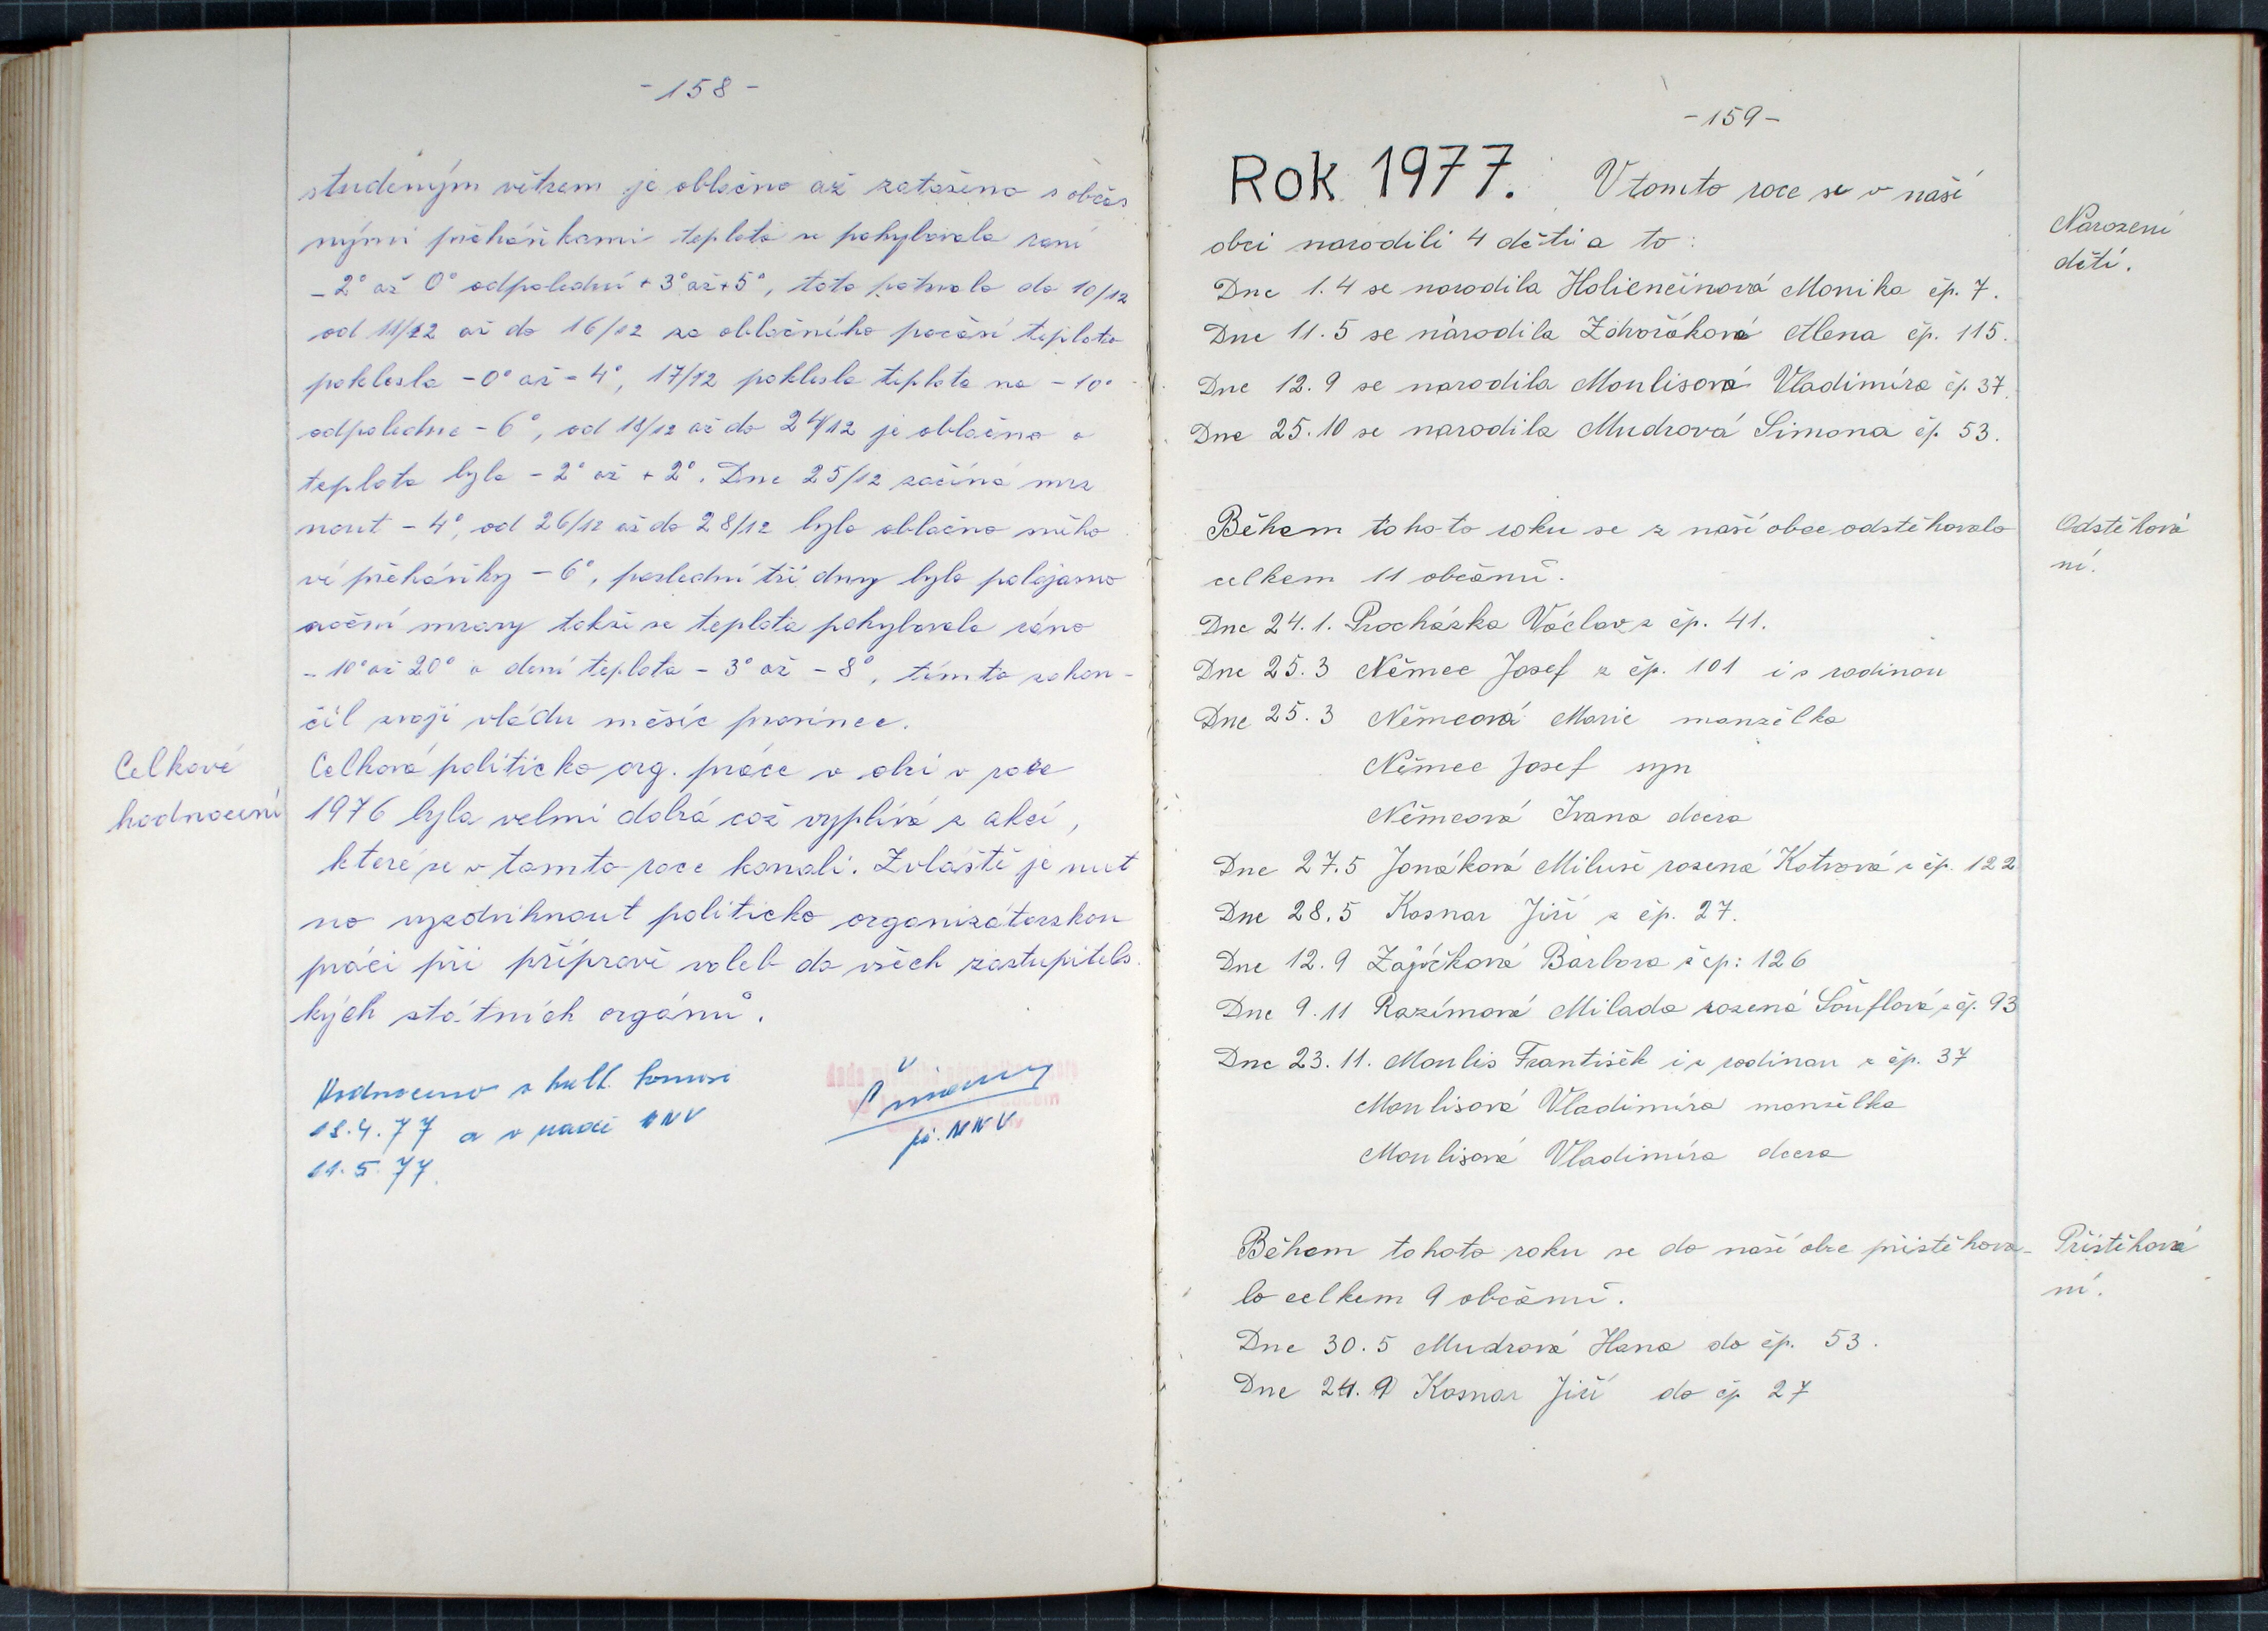 -158-
studeným větrem je oblačno až zataženo s občas
nými přeháňkami teplota se pohybovala raní
-2° až 0° odpolední +3° až +5°, toto potrvalo do 10/12
od 11/12 až do 16/12 za oblačného počasí teplota
poklesla -0° až -4°, 17/12 poklesla teplota na -10°
odpoledne -6°, od 18/12 až do 24/12 je oblačno a
teplota byla -2° až +2°. Dne 25/12 začíná mrz
nout -4°, od 26/12 až do 28/12 bylo oblačno sněho
vé přeháňky -6°, poslední tři dny bylo polojasno
noční mrazy takže se teplota pohybovala ráno
-10° až 20° a dení teplota -3° až -8°, tímto zakon-
čil svoji vládu měsíc prosinec.
Celkové
hodnocení
Celková politicko org. práce v obci v roce
1976 byla velmi dobrá což vyplívá z akcí,
které se v tomto roce konali. Zvláště je nut
no vyzdvihnout politicko organizátorskou
práci při přípravě voleb do všech zastupitels
kých státních orgánů.
Hodnoceno v kult. komisi
18.4.77 a v radě MNV
11.5.77.
př. MNV
-159-
Rok 1977. V tomto roce se v naší
obci narodili 4 děti a to:
Narození
dětí.
Dne 1.4 se narodila Holienčinová Monika čp. 7.
Dne 11.5 se narodila Zdvořáková Alena čp. 115.
Dne 12.9 se narodila Moulisová Vladimíra čp. 37.
Dne 25.10 se narodila Mudrová Simona čp. 53.
Během tohoto roku se z naší obce odstěhovalo
celkem 11 občanů.
Odstěhová
ní.
Dne 24.1. Procházka Václav z čp. 41.
Dne 25.3 Němec Josef z čp. 101 i s rodinou
Dne 25.3 Němcová Marie manželka
Němec Josef syn
Němcová Ivana dcera
Dne 27.5 Jonáková Miluše rozená Kotvová z čp. 122
Dne 28.5 Kosnar Jiří z čp. 27.
Dne 12.9 Zajíčková Barbora z čp: 126
Dne 9.11 Razímová Milada rozená Šouflová z čp. 93
Dne 23.11. Moulis František i s rodinou z čp. 37
Moulisová Vladimíra manželka
Moulisová Vladimíra dcera
Během tohoto roku se do naší obce přistěhova-
lo celkem 9 občanů.
Přistěhová
ní.
Dne 30.5 Mudrová Hana do čp. 53.
Dne 24.9 Kosnar Jiří do čp 27